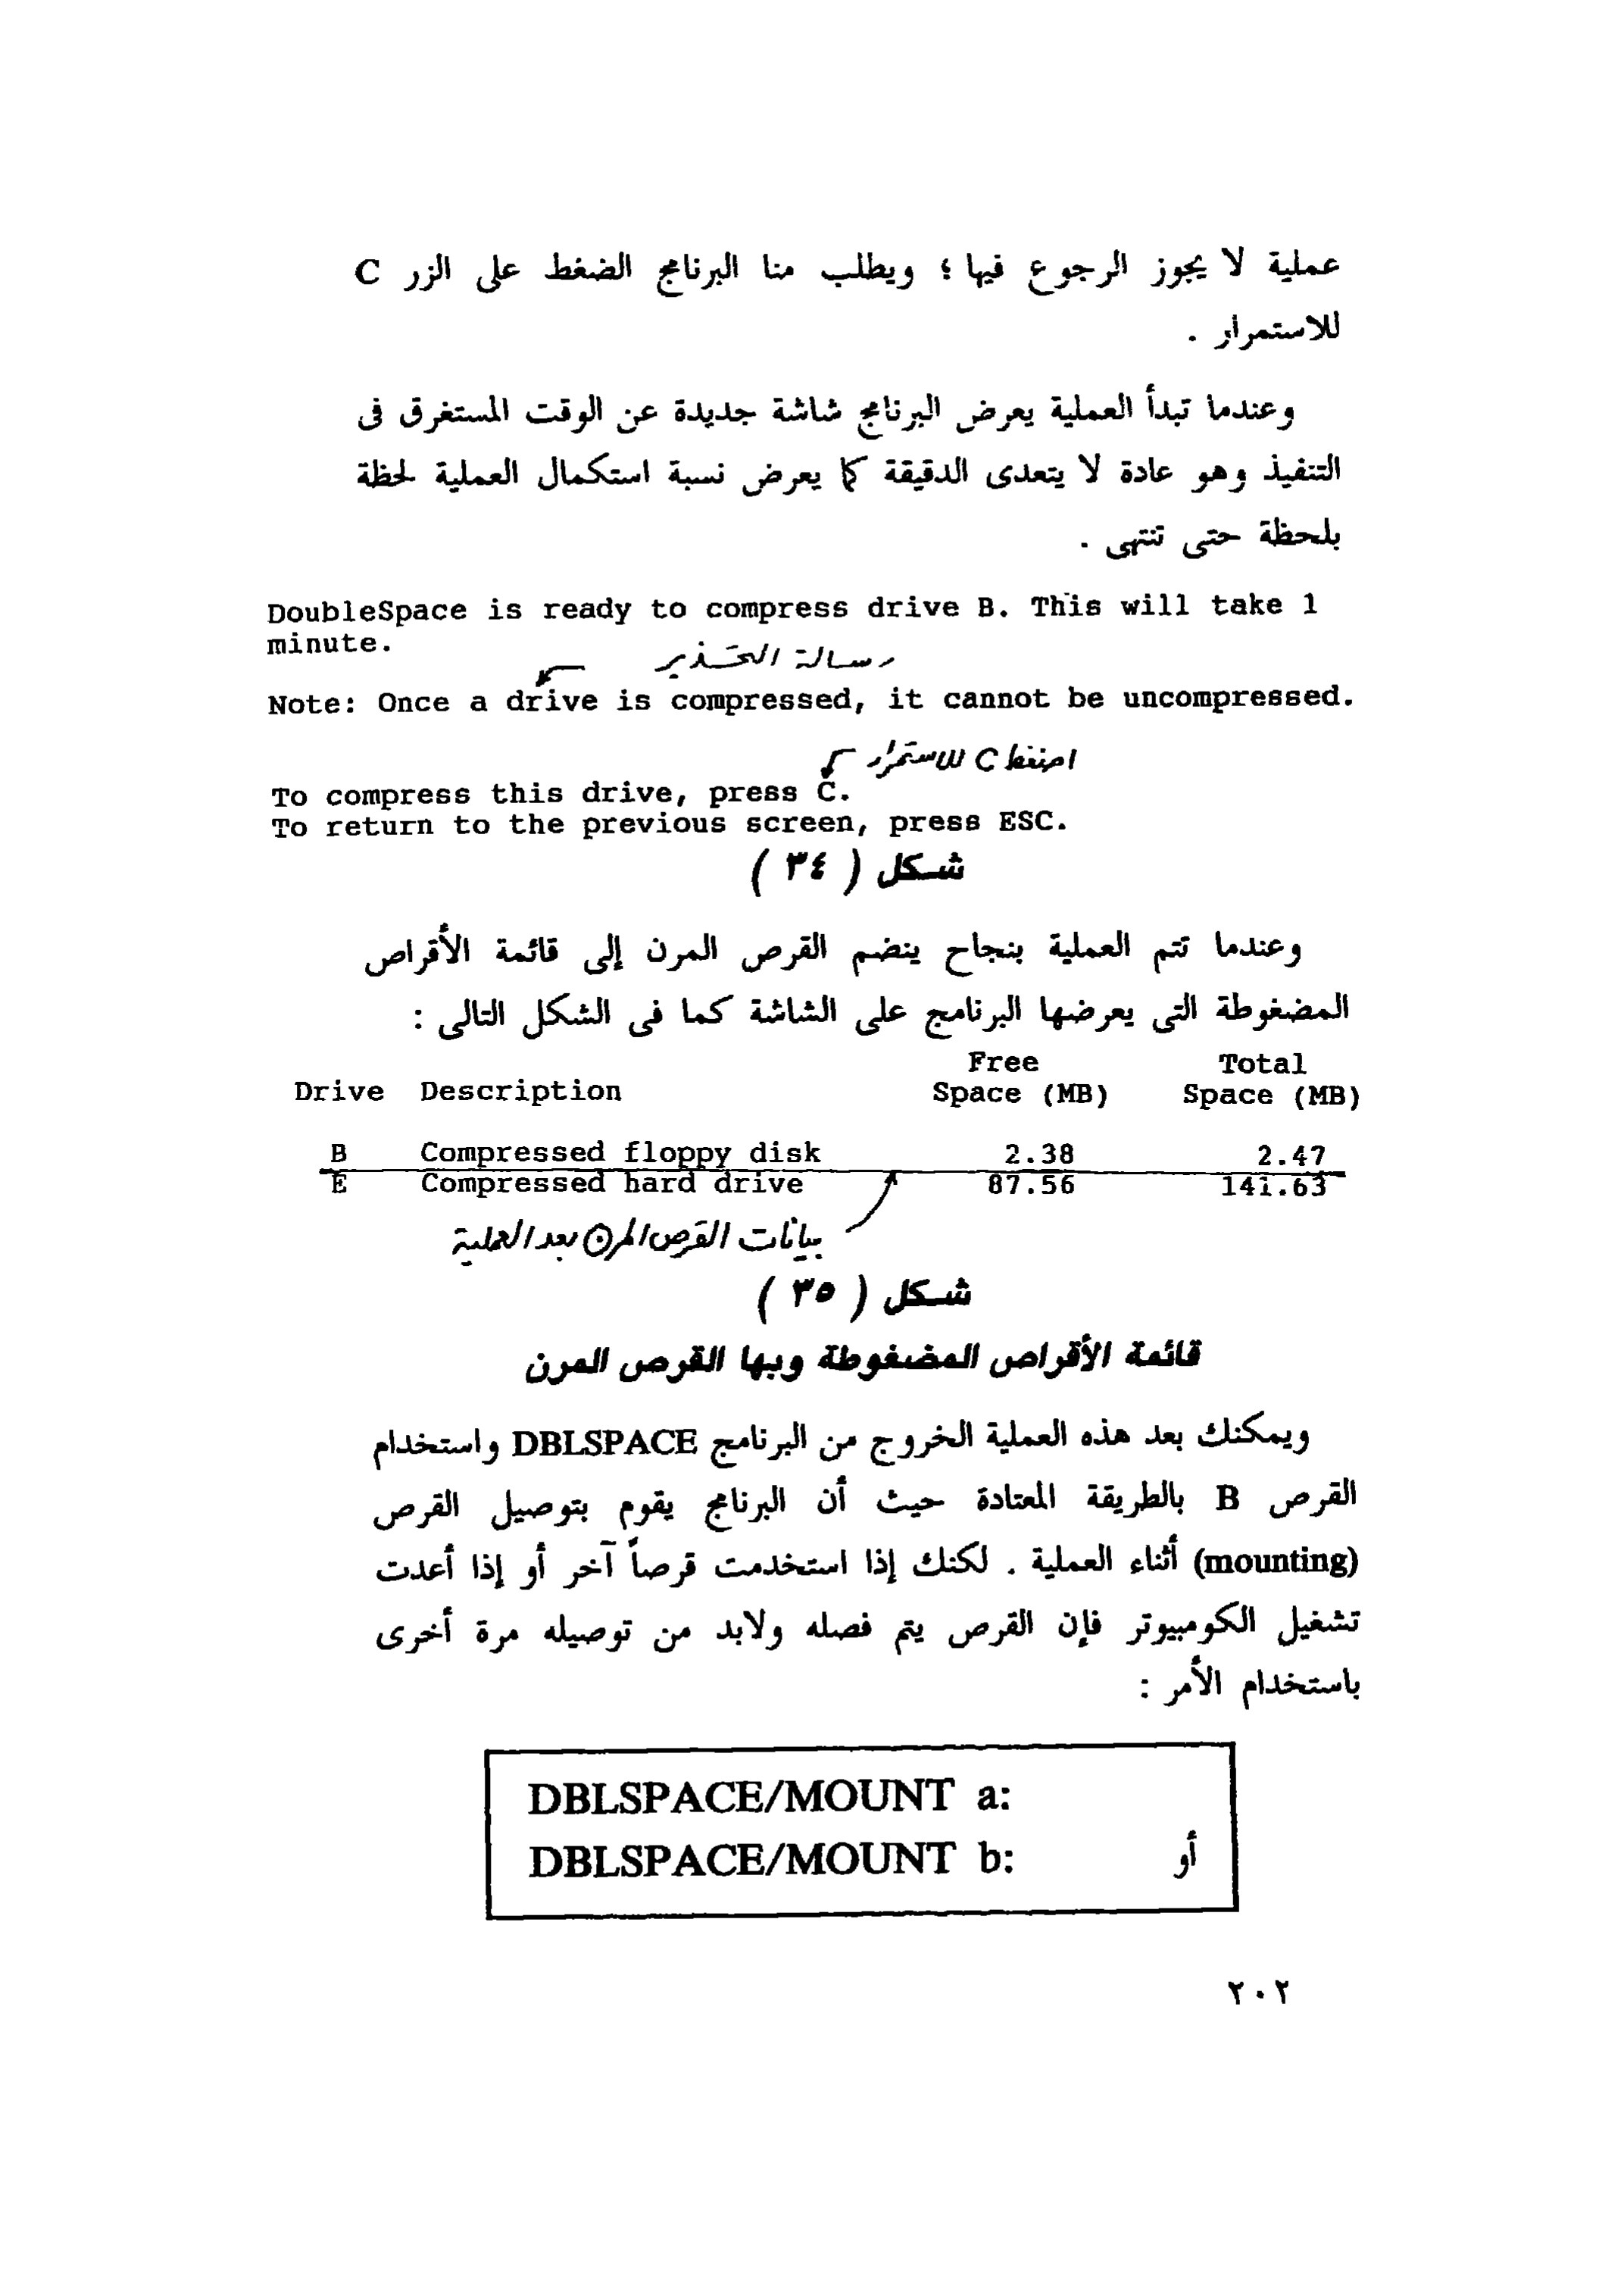 عملية لا يجوز الرجوع فيها ؛ ويطلب منا البرنامج الضغط على الزر C
للاستمرار .
وعندما تبدأ العملية يعرض البرنامج شاشة جديدة عن الوقت المستغرق فى
التنفيذ وهو عادة لا يتعدى الدقيقة كما يعرض نسبة استكمال العملية لحظة
بلحظة حتى تنتهى .
DoubleSpace is ready to compress drive B. This will take 1
minute.
رسالة التحذير
Note: Once a drive is compressed, it cannot be uncompressed.
اضغط C للاستمرار
To compress this drive, press C.
To return to the previous screen, press ESC.
شكل ( ٣٤ )
وعندما تتم العملية بنجاح ينضم القرص المرن إلى قائمة الأقراص
المضغوطة التى يعرضها البرنامج على الشاشة كما فى الشكل التالى :
Free Total
Drive Description Space (MB) Space (MB)
B Compressed floppy disk 2.38 2.47
E Compressed hard drive 87.56 141.63
بيانات القرص المرن بعد العملية
شكل ( ٣٥ )
قائمة الأقراص المضغوطة وبها القرص المرن
ويمكنك بعد هذه العملية الخروج من البرنامج DBLSPACE واستخدام
القرص B بالطريقة المعتادة حيث أن البرنامج يقوم بتوصيل القرص
(mounting) أثناء العملية . لكنك إذا استخدمت قرصاً آخر أو إذا أعدت
تشغيل الكومبيوتر فإن القرص يتم فصله ولابد من توصيله مرة أخرى
باستخدام الأمر :
DBLSPACE/MOUNT a:
DBLSPACE/MOUNT b: أو
٢٠٢